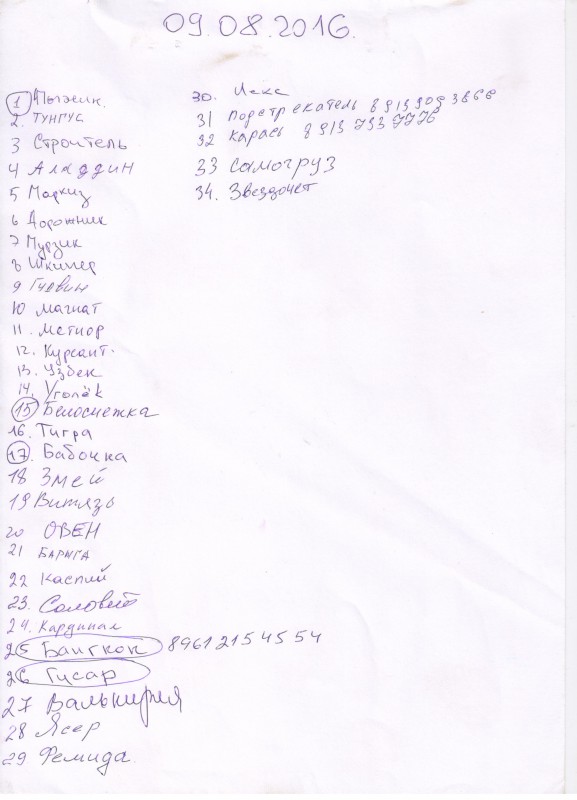 09.08.2016.
1 Пыжик.
2. ТУНГУС
3 Строитель
4 Аладдин
5 Маркиз
6 Дорожник
7 Мурзик
8 Шкипер
9 Гудвин
10 магнат
11. Метиор
12. Курсант.
13. Узбек
14. Уголёк
15) Белоснежка
16. Тигра
17. Бабочка
18 Змей
19 Витязь
20 ОВЕН
21 БАРЫГА
22 Каспий
23. Соловей
24. Кардинал
25 Бангкок 89612154554
26 Гусар
27 Валькирия
28 Ясер
29 Фемида.
30. Лекс
31 Подстрекатель 89139093866
32 Карась 89137937776
33 Самогруз
34. Звездочет